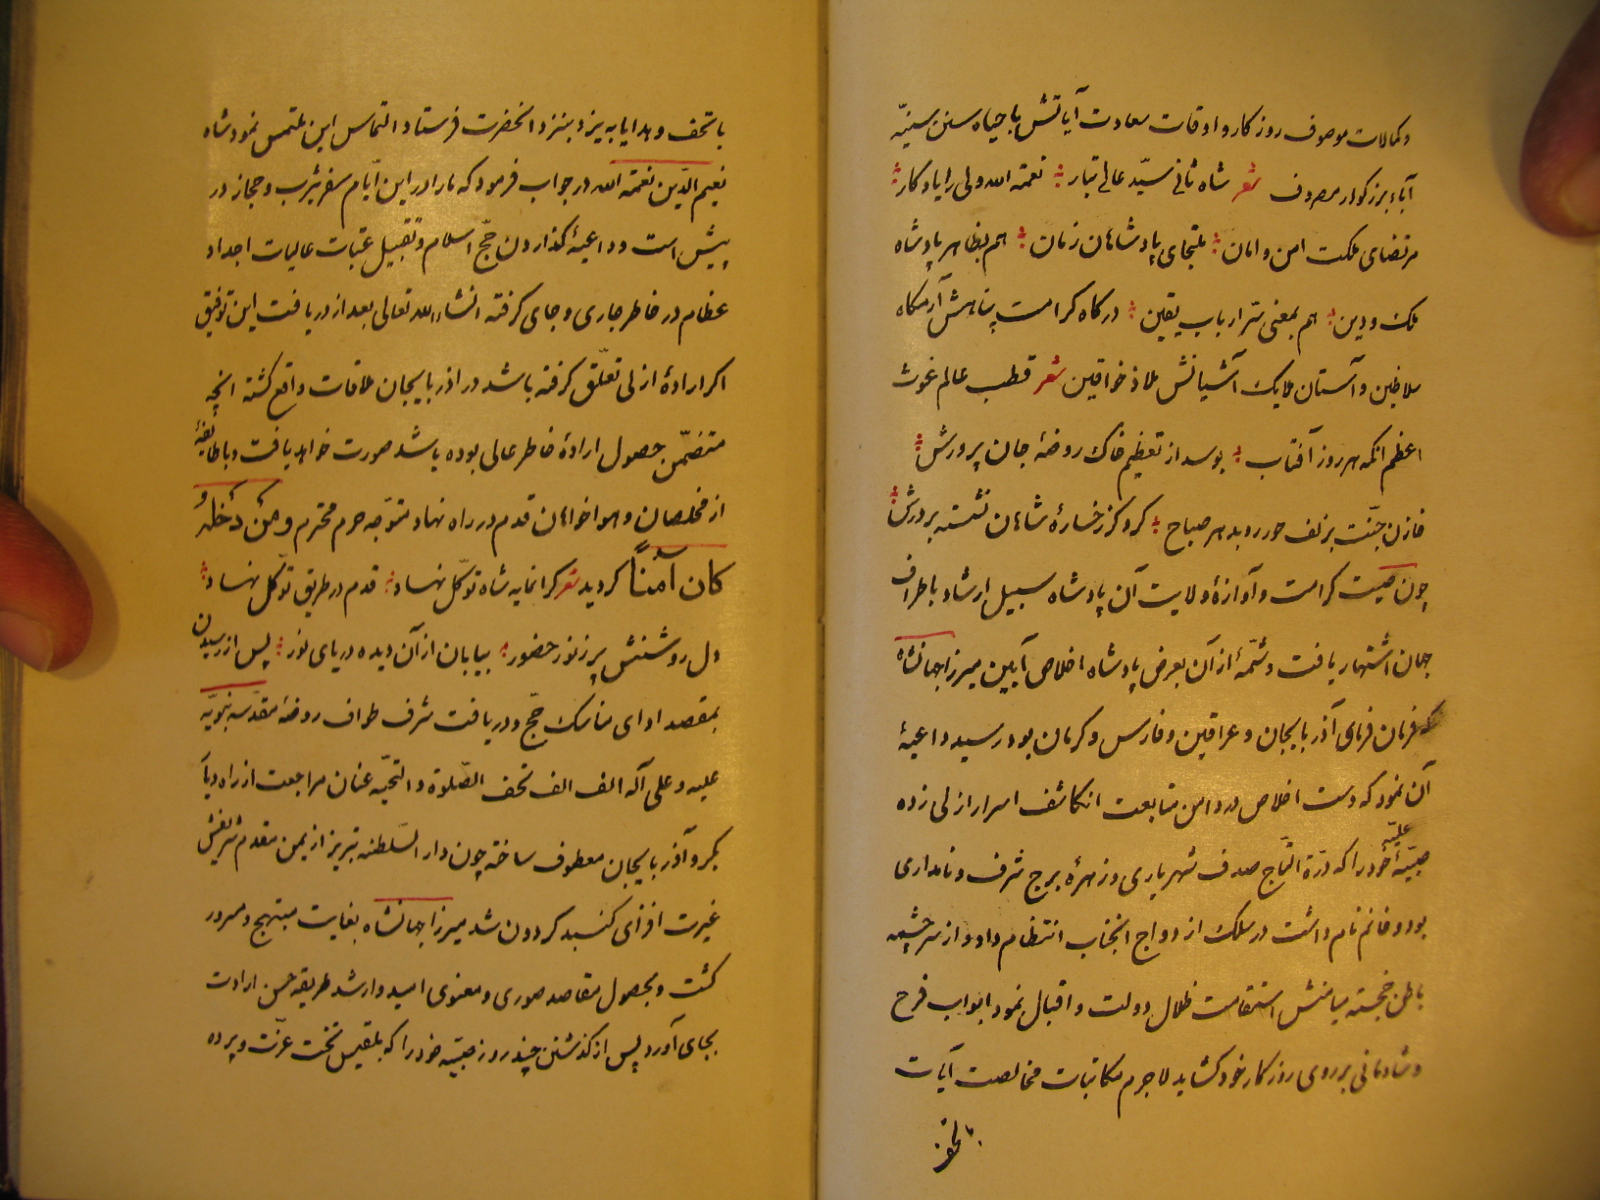 وکمالات موصوف روزکار و اوقات سعادت آیاتش باحیاء سنن سنیّه
آباء بزرکوار مصروف شعر شاه ثانی سیّد عالی تبار نعمة الله ولی را یادکار
مرتضای ملکت امن و امان ملتجای پادشاهان زمان هم بظاهر پادشاه
ملک و دین هم بمعنی سرّ ارباب یقین درکاه کرامت پناهش آرمکاه
سلاطین و آستان ملایک آشیانش ملاذ خواقین شعر قطب عالم غوث
اعظم آنکه هر روز آفتاب بوسد از تعظیم خاک روضهٔ جان پرورش
خازن جنّت بزلف حور روبد هر صباح کرد کز رخسارهٔ شاهان نشسته بر درش
چون صیت کرامت و آوازهٔ ولایت آن پادشاه سبیل ارشاد باطراف
جهان اشتهار یافت و شمّهٔ از آن بعرض پادشاه اخلاص آیین میرزا جهانشاه
که فرمان فرمای آذربایجان و عراقین و فارس و کرمان بود رسید داعیهٔ
آن نمود که دست اخلاص در دامن متابعت انکاشف اسرار ازلی زده
صبیّهٔ علیّه خود را که درّة التّاج صدف شهریاری و زهرهٔ برج شرف و نامداری
بود و خانم نام داشت در سلک ازدواج انجناب انتظام داد و از سرچشمه
باطن خجسته میامنش استقامت ظلال دولت و اقبال نمود ابواب فرح
و شادمانی بر روی روزکار خود کشاید لاجرم مکاتبات مخالصت آیات
باتحف
باتحف و هدایا به یزد بنزد انحضرت فرستاد و التماس این ملتمس نمود شاه
نعیم الدّین نعمة الله در جواب فرمود که مارا در این ایّام سفر یثرب و حجاز در
پیش است و داعیهٔ کذاردن حجّ اسلام و تقبیل عتبات عالیات اجداد
عظام در خاطر جاری و جای کرفته انشاء الله تعالی بعد از دریافت این توفیق
اکر ارادهٔ ازلی تعلّق کرفته باشد در اذربایجان ملاقات واقع کشته انچه
متضمّن حصول ارادهٔ خاطر عالی بوده باشد صورت خواهد یافت و با طایفهٔ
از مخلصان و هواخواهان قدم در راه نهاد متوّجه حرم محترم و مَنْ دَخَلَهُ
کان آمناً کردید شعر کرانمایه شاه توکّل نهاد قدم در طریق توکّل نهاد
دل روشنش پر ز نور حضور بیابان از آن دیده دریای نور پس از رسیدن
بمقصد ادای مناسک حجّ و دریافت شرف طواف روضهٔ مقدّسه نبویّه
علیه و علی آله الف الف تحف الصّلوة و التحیّه عنان مراجعت از راه دیا
بکر و آذربایجان معطوف ساخته چون دار السّلطنه تبریز از یمن مقدم شریفش
غیرت افزای کنبد کردون شد میرزا جهانشاه بغایت مبتهج و مسرور
کشت و بحصول مقاصد صوری و معنوی امیدوار شد طریقه حسن ارادت
بجای آورد پس از کذشتن چند روز صبیّه خود را که بلقیس تخت عزّت و پرده